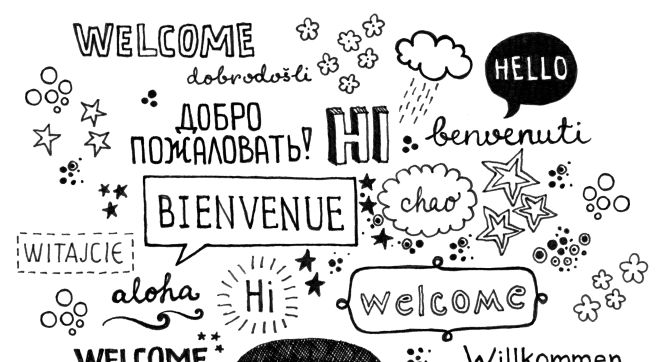 WELCOME
dobrodošli
HELLO
ДОБРО
ПОЖАЛОВАТЬ!
HI
benvenuti
BIENVENUE
chao
WITAJCIE
aloha
Hi
welcome
WELCOME
Willkommen